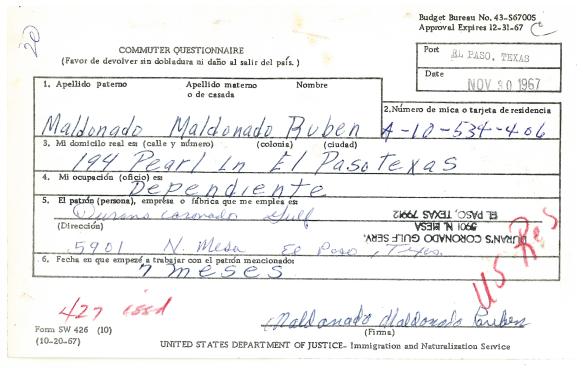 Budget Bureau No. 43-S67005
Approval Expires 12-31-67
20
C
COMMUTER QUESTIONNAIRE
(Favor de devolver sin dobladura ni daño al salir del país.)
Port
EL PASO, TEXAS
Date
NOV 30 1967
1. Apellido paterno Apellido materno o de casada Nombre
Maldonado Maldonado Ruben
2. Número de mica o tarjeta de residencia
A-10-534-406
3. Mi domicilio real es (calle y número) (colonia) (ciudad)
194 Pearl Ln El Paso Texas
4. Mi ocupación (oficio) es:
Dependiente
5. El patrón (persona), empresa o fábrica que me emplea es:
Durans Coronado Gulf
(Dirección)
5901 N. Mesa El Paso, Texas
DURAN'S CORONADO GULF SERV.
5901 N. MESA
EL PASO, TEXAS 79912
6. Fecha en que empezé a trabajar con el patrón mencionado:
7 meses
US Res
427 issd
Maldonado Maldonado Ruben
(Firma)
Form SW 426 (10)
(10-20-67)
UNITED STATES DEPARTMENT OF JUSTICE- Immigration and Naturalization Service